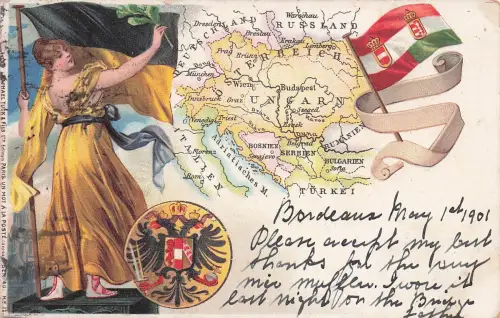 DEUTSCHLAND
RUSSLAND
Dresden
Breslau
Warschau
Prag
Brünn
Krakau
Lemberg
ÖSTERREICH
München
Wien
Budapest
Innsbruck
Graz
UNGARN
Szeged
Venedig
Triest
Belgrad
RUMÄNIEN
BOSNIEN
Serajevo
SERBIEN
BULGARIEN
Sofia
Florenz
Adriatisches M.
ITALIEN
Rom
TÜRKEI
RAPHAEL TUCK & FILS
PARIS
UN MOT À LA POSTE
Bordeaux May 1st 1901
Please accept my best
thanks for the very
nice muffler. I wore it
last night on the